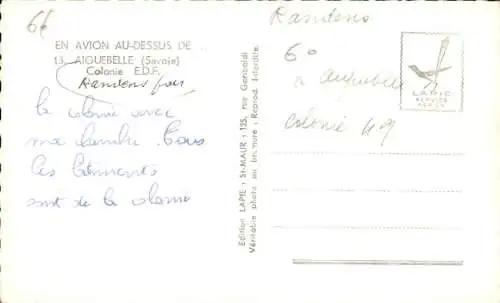 66
EN AVION AU-DESSUS DE ...
13. AIGUEBELLE (Savoie)
Colonie E.D.F.
Randens
la colonie avec
ma chambre. Tous
les bâtiments
sont de la colonie
Edition LAPIE : St-MAUR : 125, rue Garibaldi
Véritable photo au bromure : Reprod. Interdite.
Randens
6°
a aiguebelle
colonie 49
LAPIE
SERVICE
AERIEN